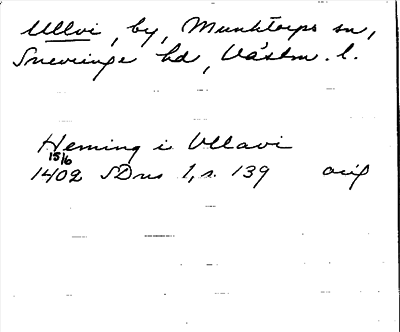 Ullvi, by, Munktorps sn,
Snevringe hd, Västm. l.
Heming i Ullavi
15/6
1402 SDns 1, s. 139 orig